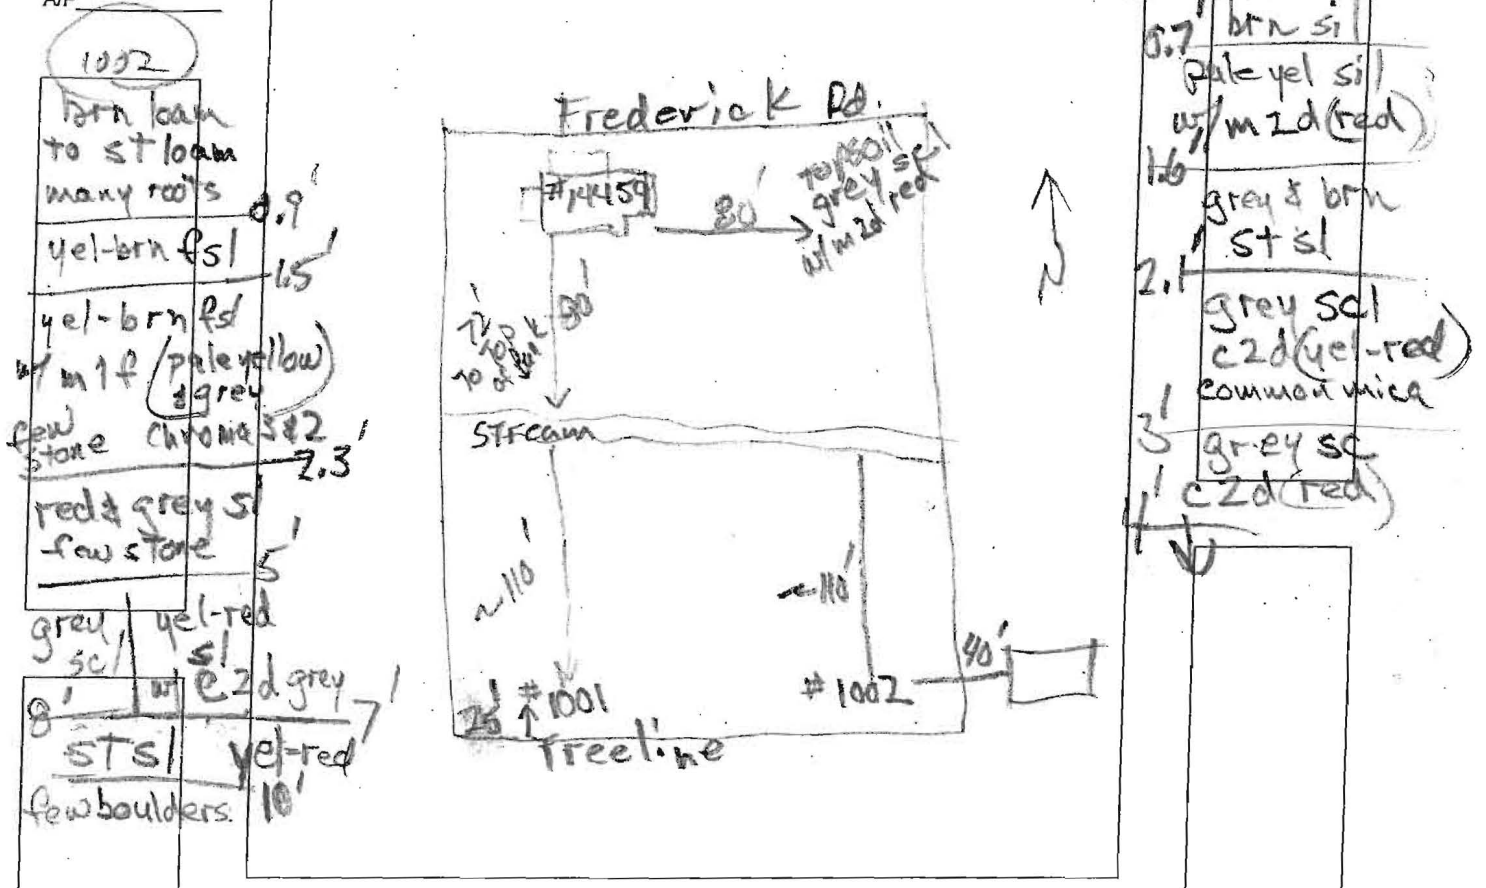 A/P
1002
brn loam
to st loam
many roots
0.9'
yel-brn fsl
1.5'
yel-brn fsl
w/ m1f (pale yellow
& grey)
few stone chroma 3 & 2
2.3'
red & grey sl
-few stone
5'
grey scl
yel-red sl
w/ c2d grey
8'
7'
stsl
yel-red
10'
few boulders
Frederick Rd.
#14459
80'
topsoil
grey scl
w/ m2d red
80'
72'
to top
of bank
Stream
~110'
~110'
#1001
#1002
40'
25'
Treeline
N
0.7'
brn sil
pale yel sil
w/ m2d (red)
1.6'
grey & brn
stsl
2.1'
grey scl
c2d (yel-red)
common mica
3'
grey sc
c2d (red)